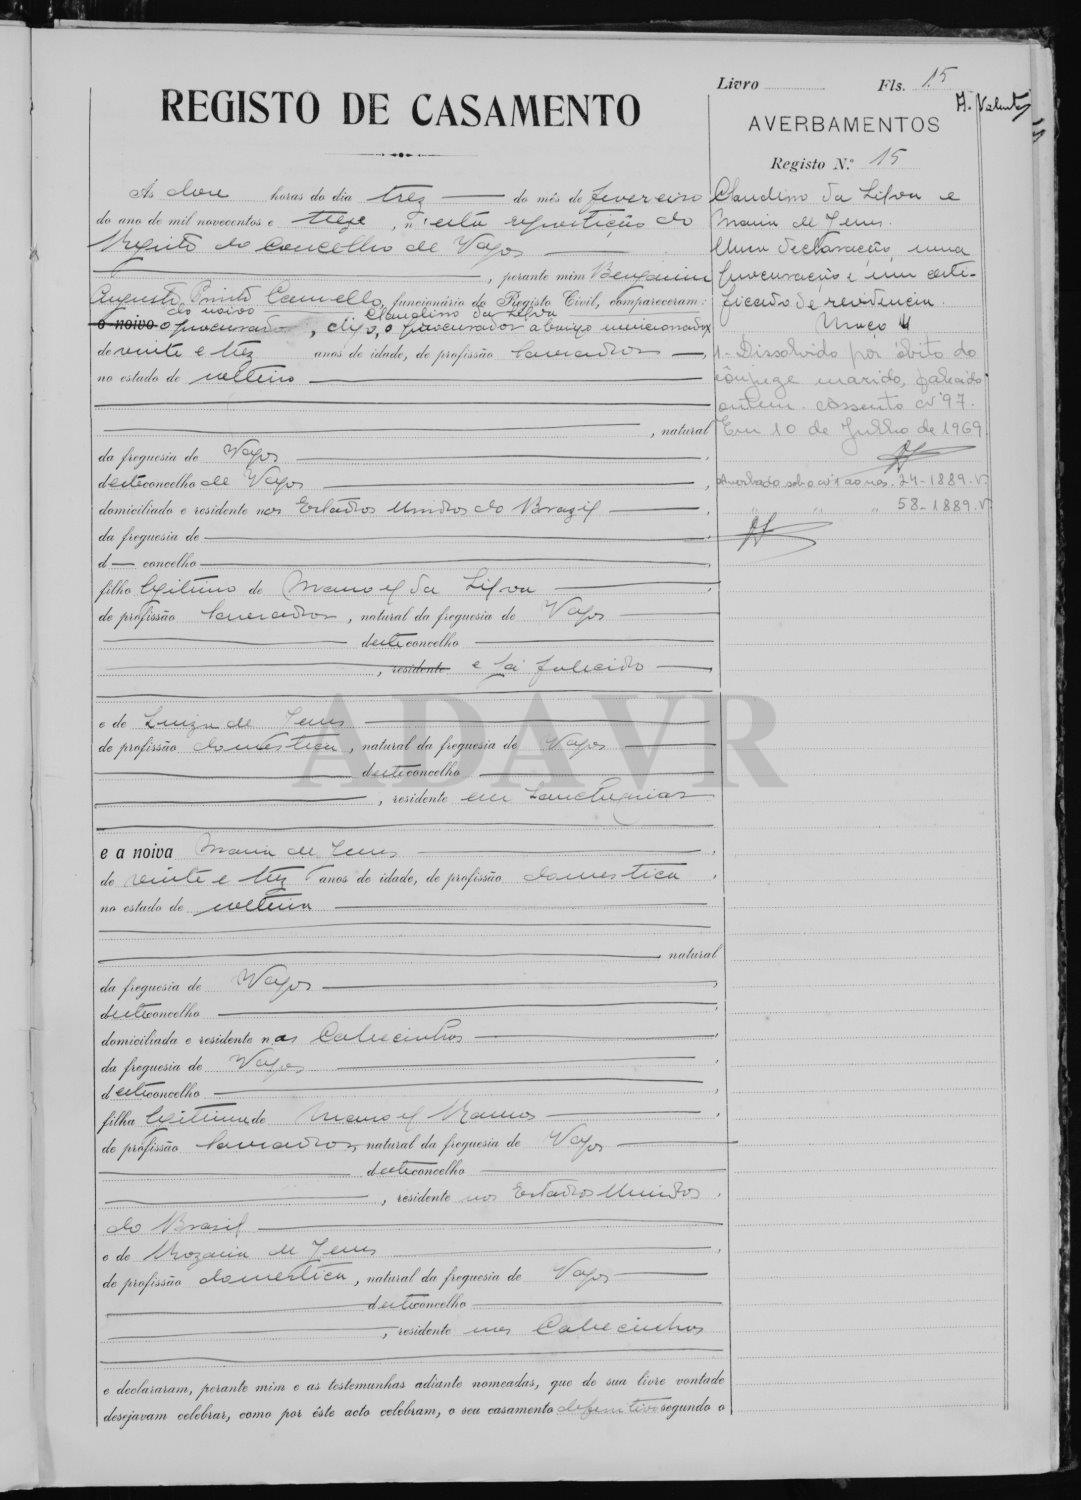 Livro Fls. 15
REGISTO DE CASAMENTO
AVERBAMENTOS
Registo N.º 15
Ás doze horas do dia trez do mês de fevereiro
do ano de mil novecentos e treze, n'esta repartição do
Registo do Concelho de Vagos
, perante mim Benjamim
Augusto Pinto Camello, funcionário do Registo Civil, compareceram:
do noivo Claudino da Silva
o noivo o procurador, digo, o procurador abaixo mencionado,
de vinte e trez anos de idade, de profissão lavrador,
no estado de solteiro
, natural
da freguesia de Vagos,
deste concelho de Vagos,
domiciliado e residente nos Estados Unidos do Brazil,
da freguesia de
d concelho
filho legitimo de Manoel da Silva,
de profissão lavrador, natural da freguesia de Vagos
deste concelho
, residente e já falecido,
e de Luiza de Jesus
de profissão domestica, natural da freguesia de Vagos
deste concelho
, residente em Lanctuguias
e a noiva Maria de Jesus,
de vinte e trez anos de idade, de profissão domestica,
no estado de solteira
natural
da freguesia de Vagos,
deste concelho,
domiciliada e residente nas Cabecinhas,
da freguesia de Vagos,
deste concelho,
filha legitima de Manoel Ramos,
de profissão lavrador, natural da freguesia de Vagos
deste concelho
, residente nos Estados Unidos
do Brasil
e de Rozaria de Jesus,
de profissão domestica, natural da freguesia de Vagos
deste concelho
, residente nas Cabecinhas
e declararam, perante mim e as testemunhas adiante nomeadas, que de sua livre vontade
desejavam celebrar, como por êste acto celebram, o seu casamento definitivo segundo o
Claudino da Silva e
Maria de Jesus.
Uma declaração, uma
procuração e um certi-
ficado de residencia.
Maço 4
1.- Dissolvido por óbito do
cônjuge marido, falecido
ontem. assento nº 97.
Em 10 de Julho de 1969.
Averbado sob o nº 1 ao nos. 24-1889.V
" " " 58-1889.V
ADAVR